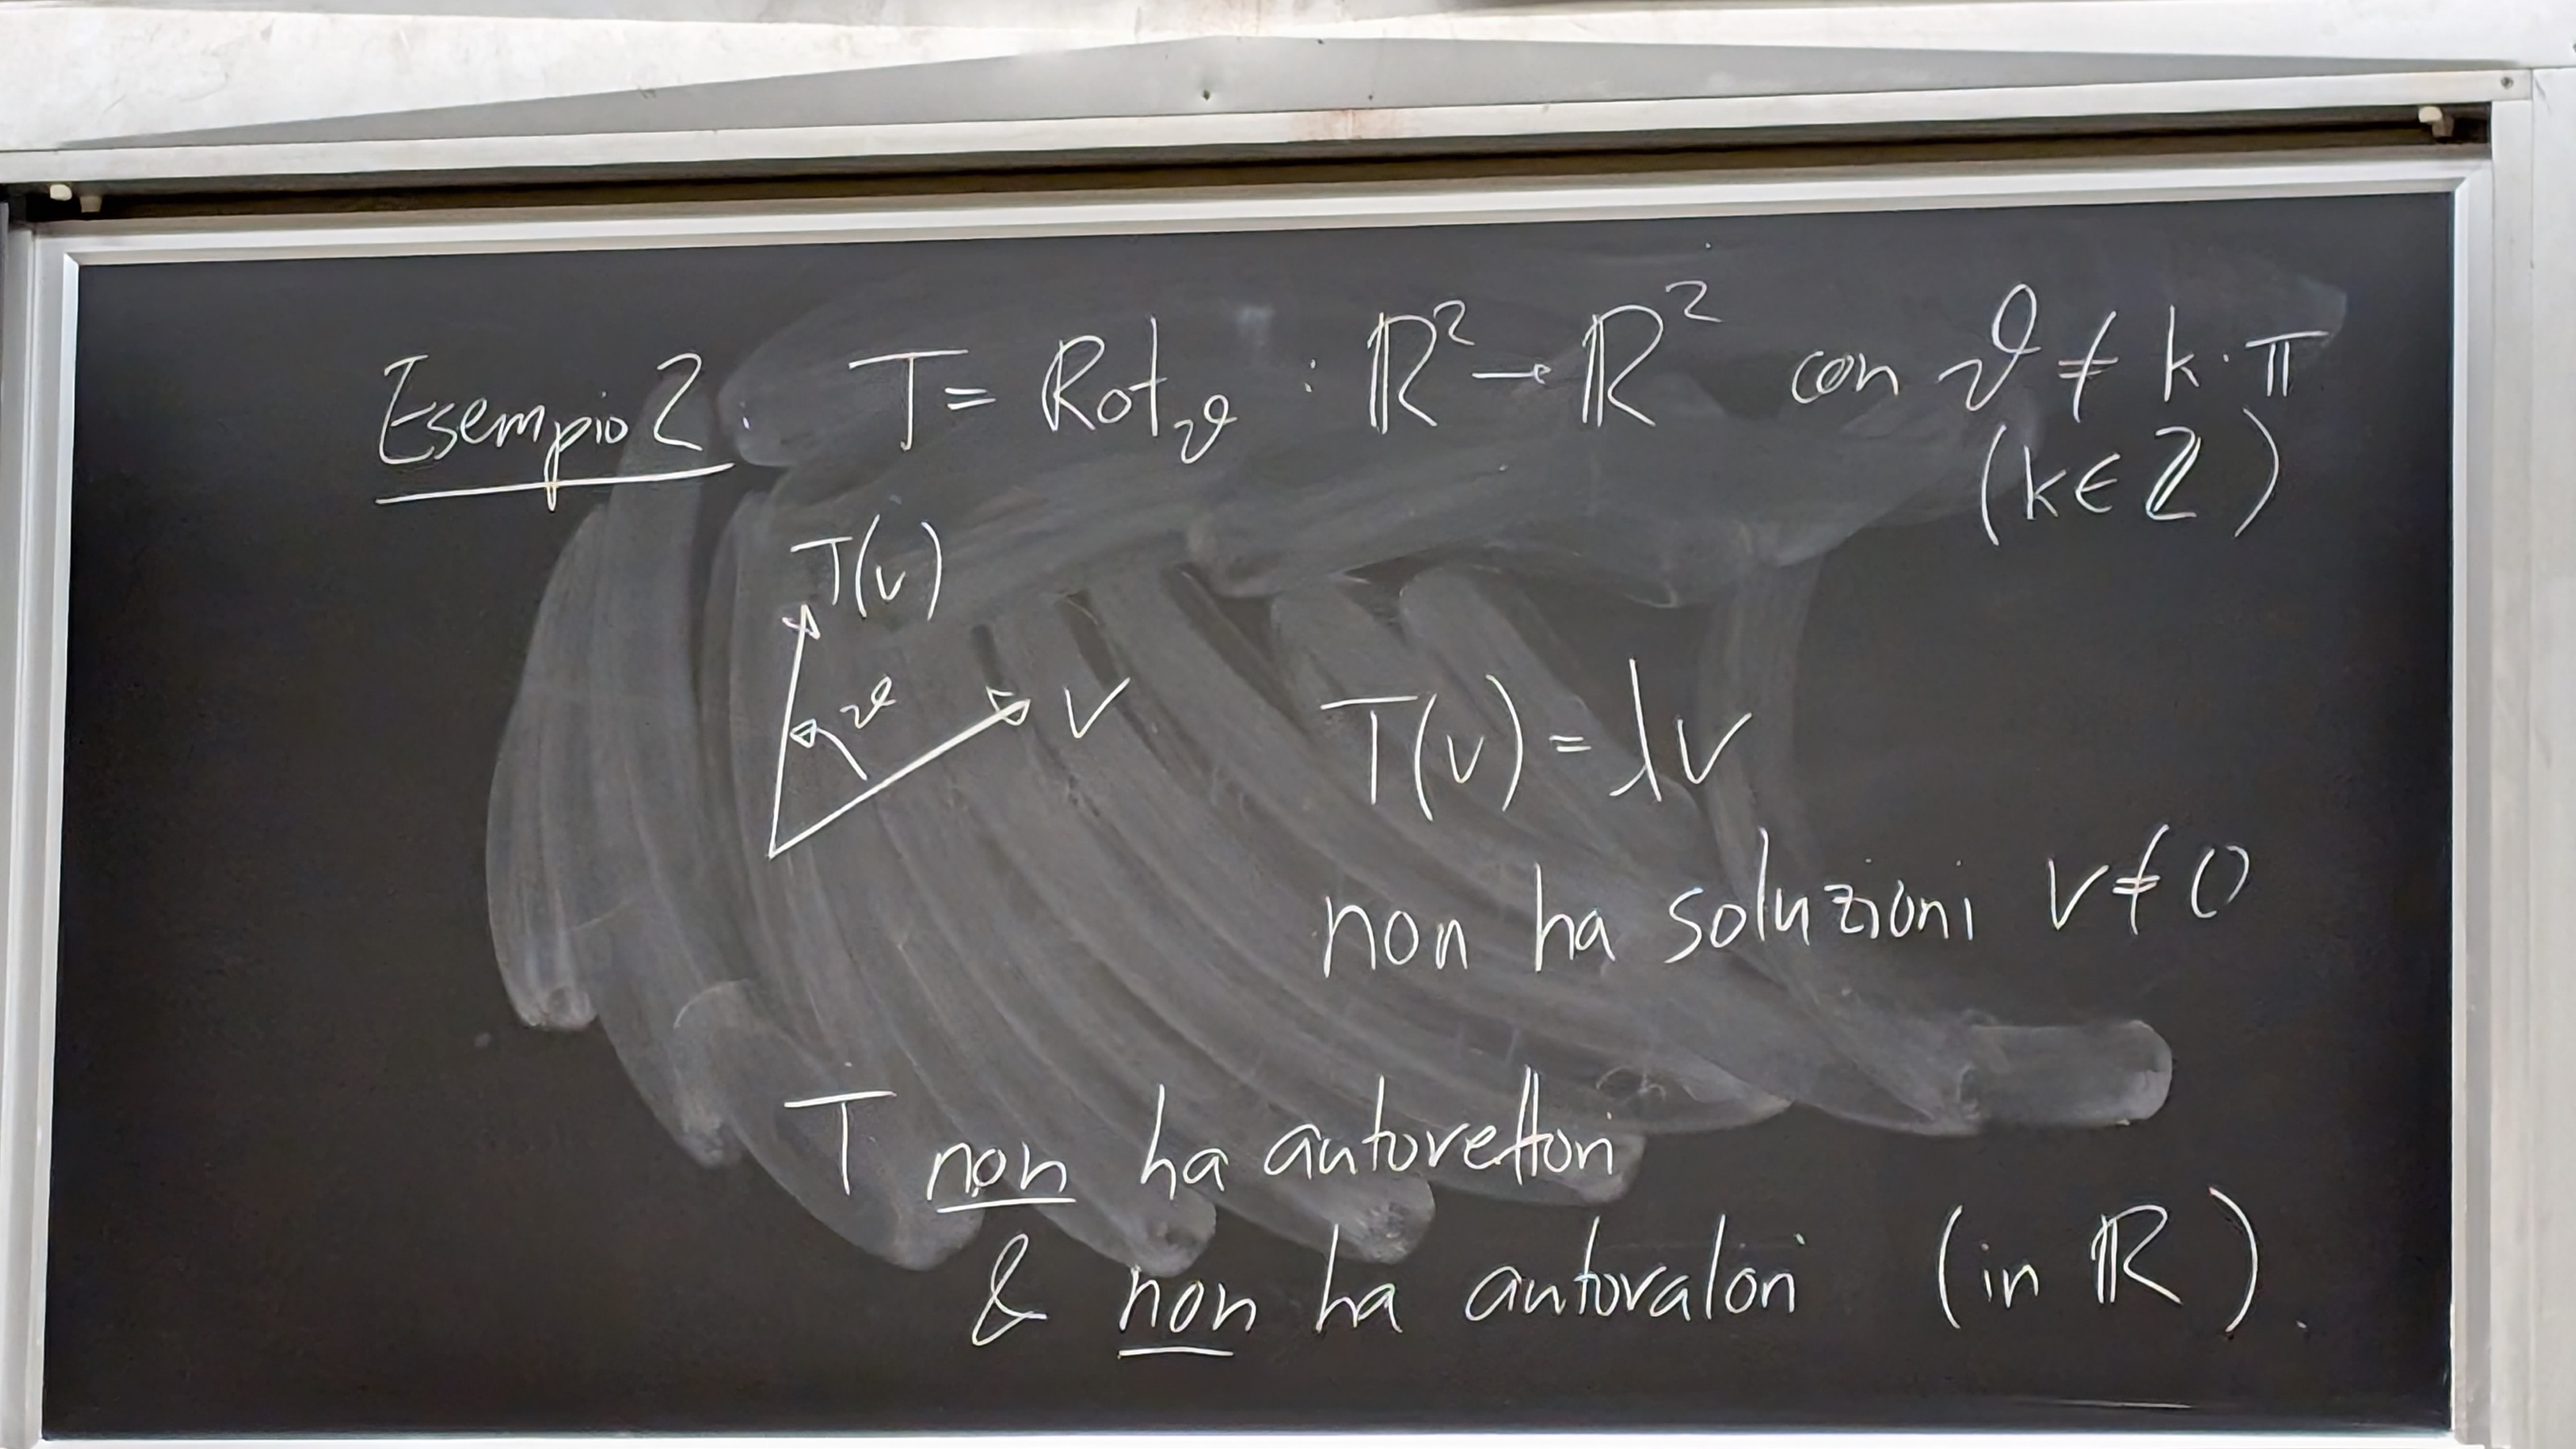 Esempio 2. T = Rot_ϑ : ℝ² → ℝ² con ϑ ≠ k·π
(k∈ℤ)
T(v)
ϑ
v
T(v) = λv
non ha soluzioni v≠0
T non ha autovettori
& non ha autovalori (in ℝ).